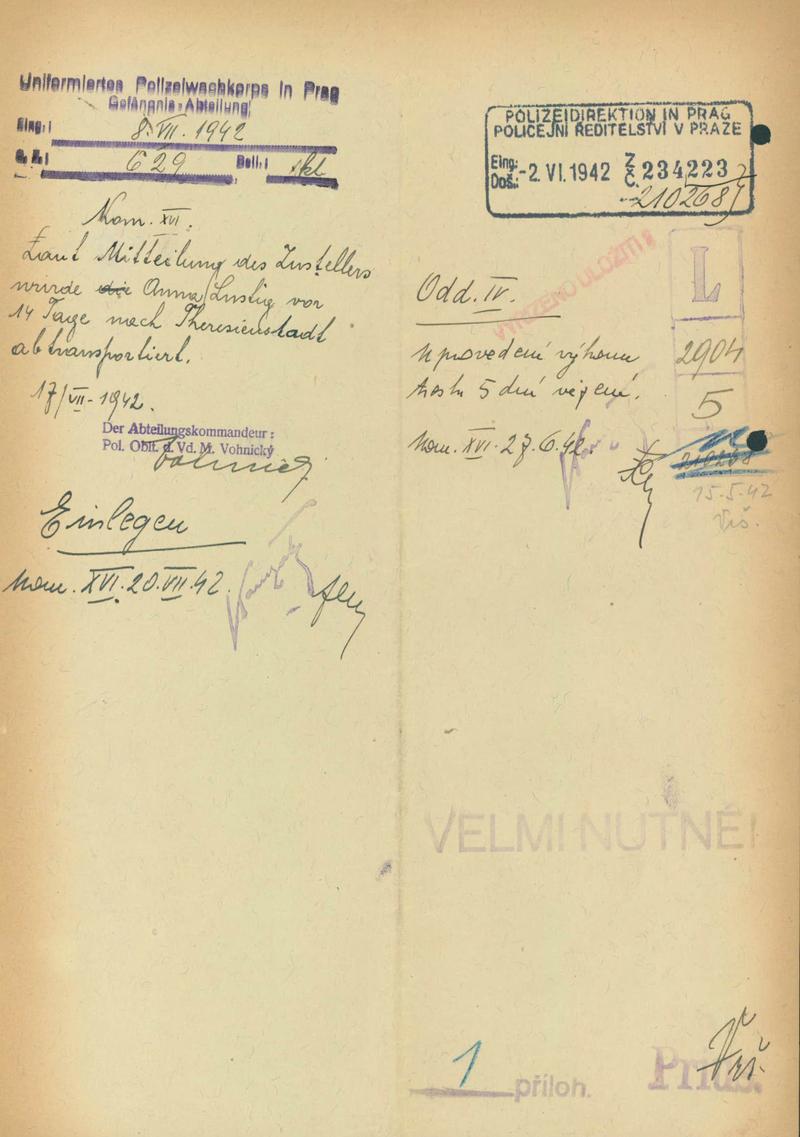 Uniformiertes Polizeiwachkorps in Prag
Gefängnis-Abteilung
Eing.: 8. VII. 1942
G. Z.: 629 Beil.: skl
Kom. XVI.
Laut Mitteilung des Zustellers
wurde die Anna Lustig vor
14 Tage nach Theresienstadt
abtransportiert.
17/VII-1942.
Der Abteilungskommandeur:
Pol. Oblt. d. Vd. M. Vohnický
Einlegen
Kom. XVI. 20.VII.42.
POLIZEIDIREKTION IN PRAG
POLICEJNÍ ŘEDITELSTVÍ V PRAZE
Eing.:
Doš.: -2. VI. 1942 Z Č. 234223
210268
VYŘÍZENO ULOŽITI
L
Odd. IV.
2904
K provedení výkonu
trestu 5 dní vězení.
5
Kom. XVI. 27.6.42.
210268
15.5.42
Vrš.
VELMI NUTNÉ!
1 příloh.
Vrš.